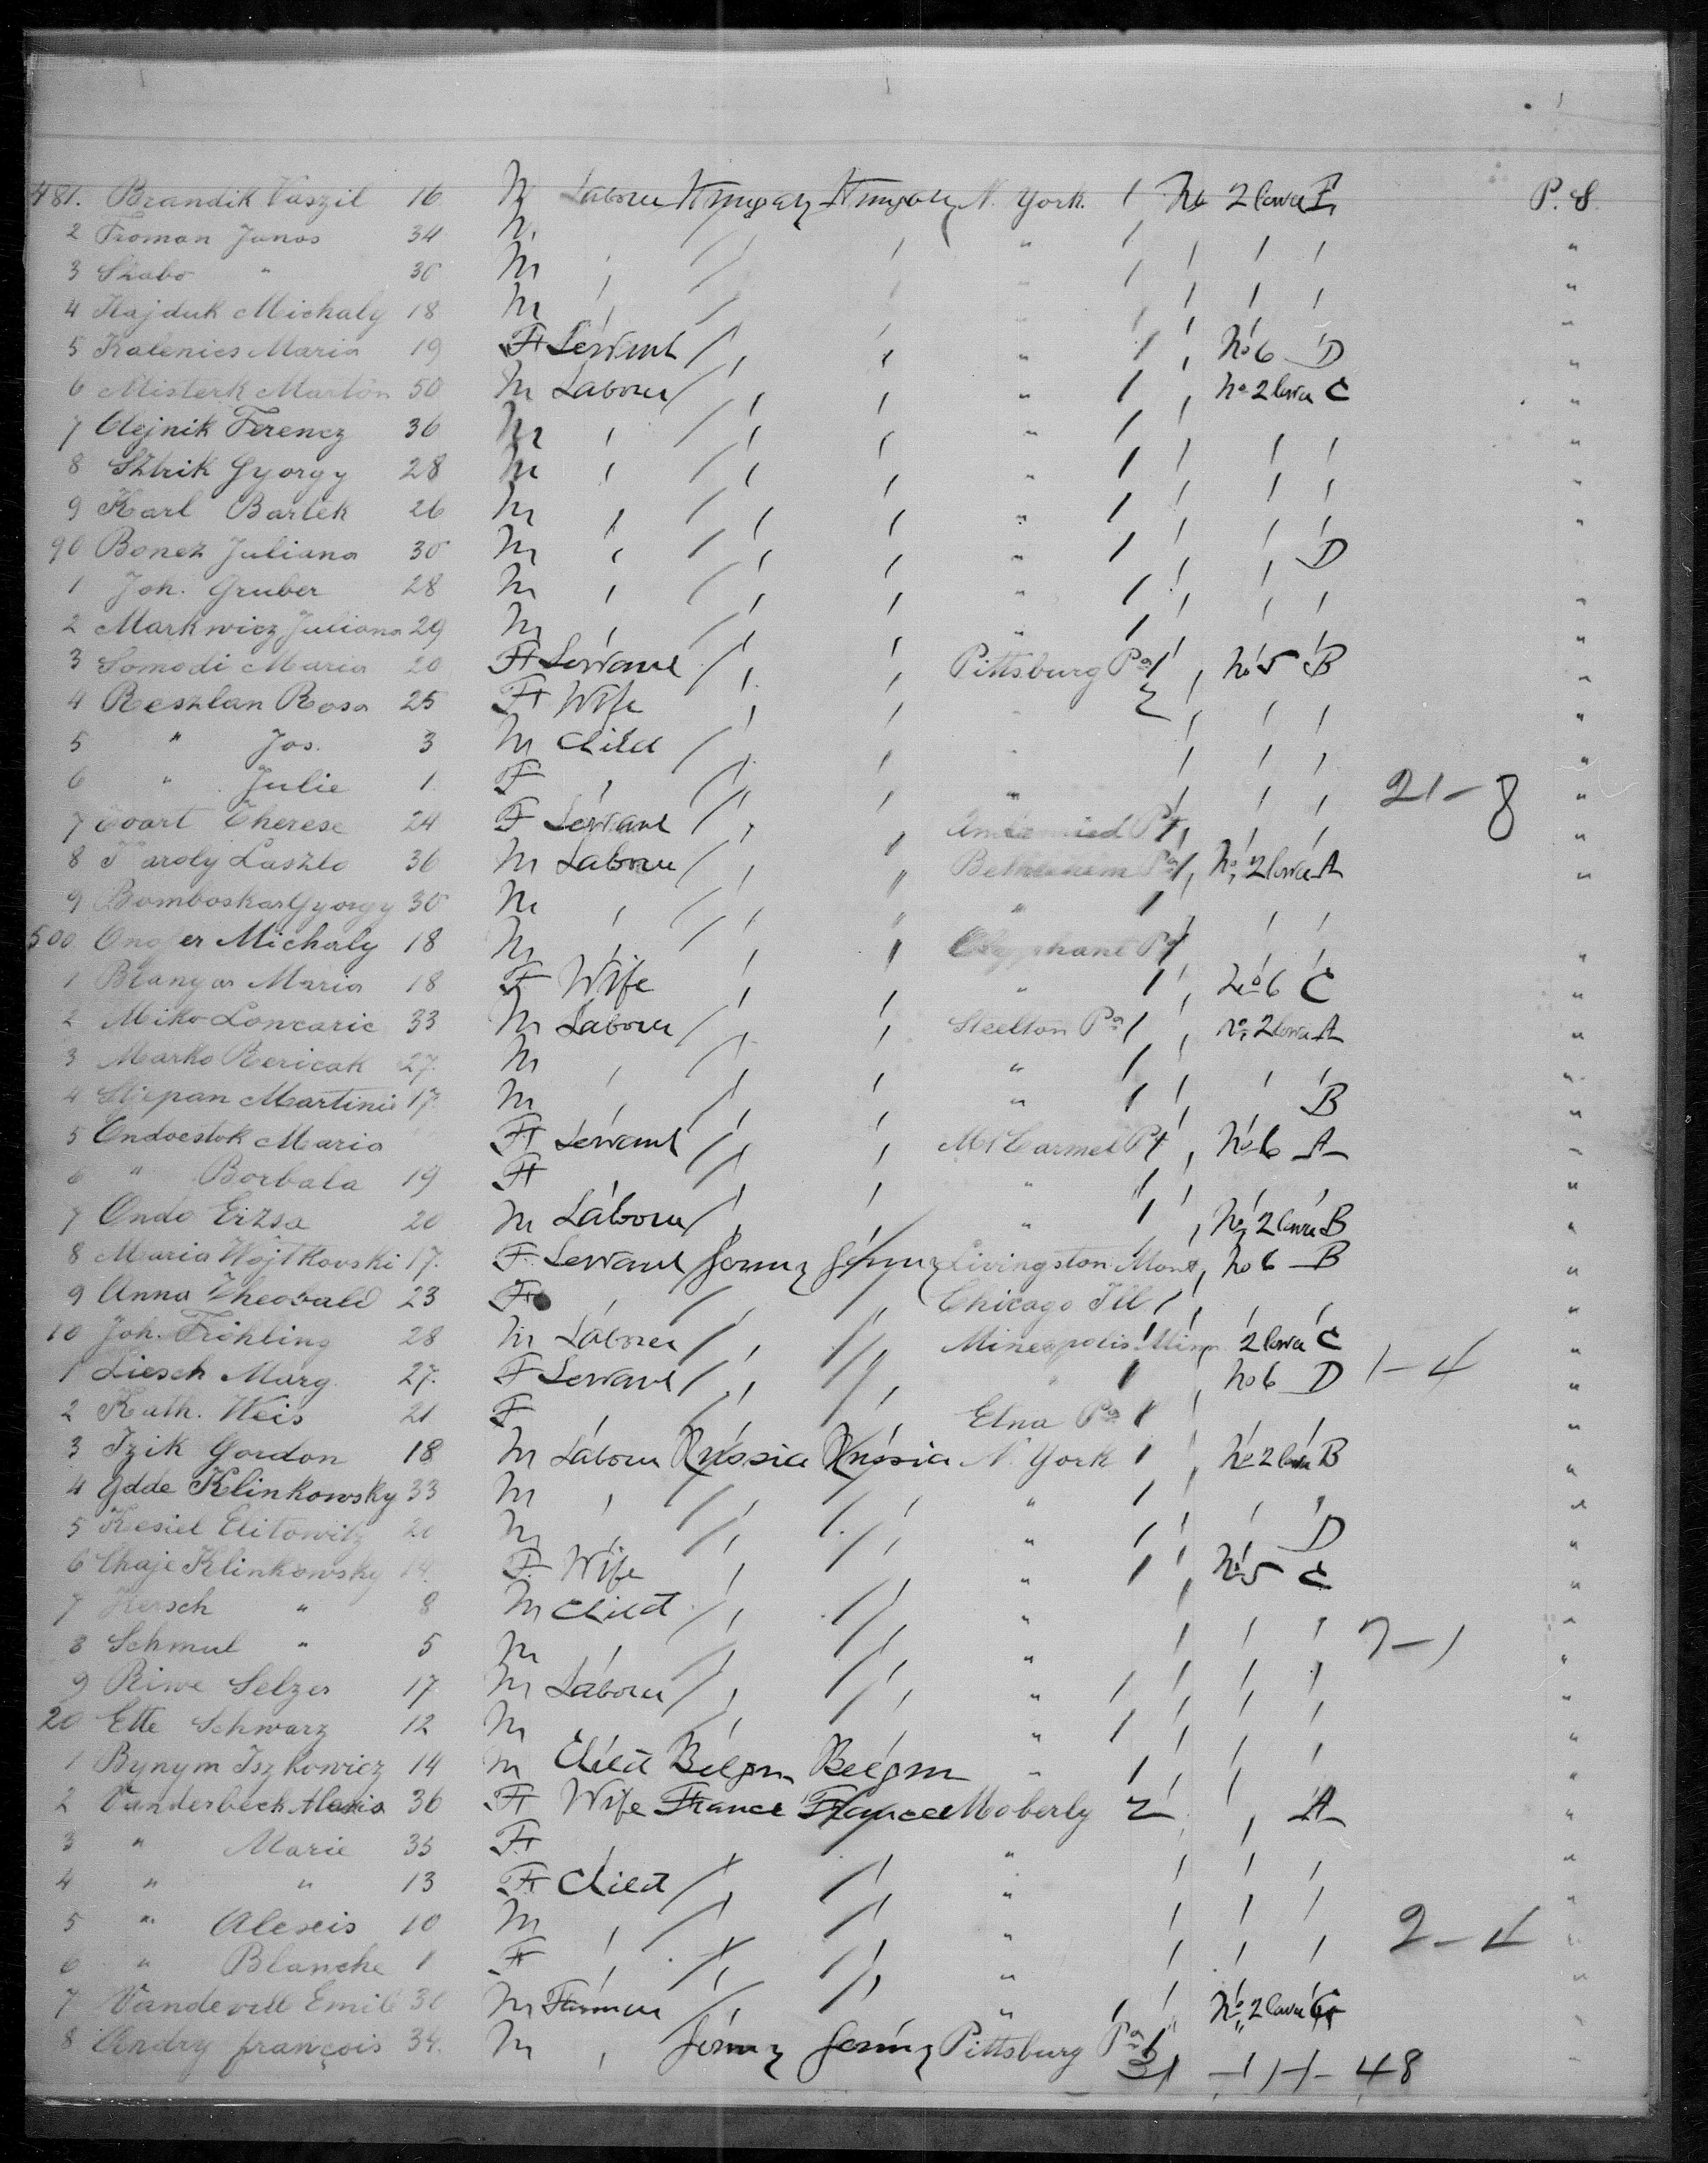 481. Brandik Vaszil 16 M Labour Hungary Hungary N. York. 1 No 2 lower E P. S.
2 Froman Janos 34 M " "
3 Szabo " 30 M "
4 Hajduk Michaly 18 M "
5 Kalenics Maria 19 F Servant " 1 No 6 D "
6 Misterk Marton 50 M Labour " 1 No 2 lower C "
7 Olejnik Ferencz 36 M " 1 "
8 Sztrik Gyorgy 28 M " 1 "
9 Karl Bartek 26 M " 1 "
90 Bonez Juliana 30 M " 1 D
1 Joh. Gruber 28 M " 1 "
2 Markwicz Juliana 29 M " 1 "
3 Somodi Maria 20 F Servant Pittsburg Pa 1 No 5 B "
4 Reszlan Rosa 25 F Wife 2 "
5 " Jos. 3 M Child "
6 " Julie 1 F " 21-8 "
7 Therese 24 F Servant "
8 Karoly Laszlo 36 M Labour " Bethlehem Pa 1 No 2 lower A "
9 Bomboskar Gyorgy 30 M " " 1
500 Michaly 18 M " Olyphant Pa "
1 Maria 18 F Wife " 1 No 6 C "
2 Miko Loncaric 33 M Labour Steelton Pa 1 No 2 lower A "
3 Marko Bericak 27 M " 1 "
4 Stjepan Martinic 17 M " 1 B "
5 Maria F Servant Mt Carmel Pa No 6 A "
6 " Borbala 19 F " "
7 Ondo Erzsa 20 M Labour " 1 No 2 lower B "
8 Maria Wojtkovski 17. F Servant Germy Germy Livingston Mont No 6 B "
9 Anna Theobald 23 F Chicago Ill 1 "
10 Joh. Fröhling 28 M Labour Mineapolis Minn 2 lower C "
1 Liesch Marg. 27. F Servant " 1 No 6 D 1-4 "
2 Kath. Weis 21 F Etna Pa 1 "
3 Izik Gordon 18 M Labour Russia Russia N. York 1 No 2 lower B "
4 Gdde Klinkowsky 33 M " 1 "
5 Kesiel Elitowitz 20 M " 1 D "
6 Chaje Klinkowsky 14. F Wife " 1 No 5 C "
7 Hersch " 8 M Child " "
8 Schmul " 5 M " 7-1 "
9 Riwe Selzer 17 M Labour " 1 "
20 Ette Schwarz 12 M " 1 "
1 Bynym Iszkowicz 14 M Child Belgm Belgm " 1 "
2 Vanderbeck Alexis 36 F Wife France France Moberly 2 A "
3 " Marie 35 F " "
4 " " 13 F Child " "
5 " Alexis 10 M " 2-4 "
6 " Blanche 1 F " "
7 Emile M Farmer " 1 No 2 lower
8 Andry françois 34. M Germy Germy Pittsburg Pa 1
31 48